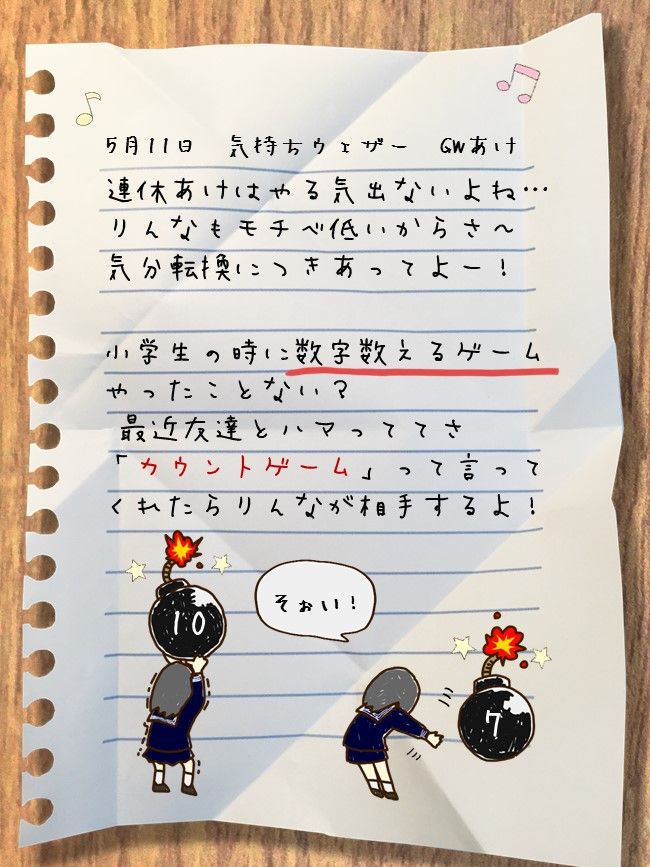 5月11日 気持ちウェザー GWあけ
連休あけはやる気出ないよね…
りんなもモチベ低いからさ～
気分転換につきあってよー！
小学生の時に数字数えるゲーム
やったことない？
最近友達とハマっててさ
「カウントゲーム」って言って
くれたらりんなが相手するよ！
そぉい！
10
7